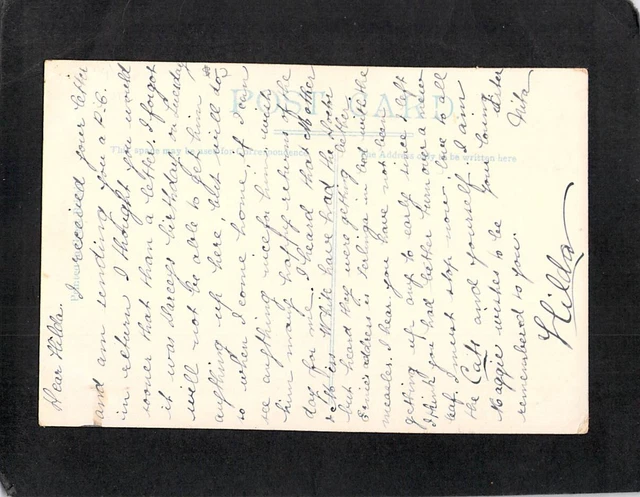 Dear Hilda. I received your letter
and am sending you a P.C.
in return I thought you would
sooner that than a letter. I forgot
it was Darceys birthday on Tuesday
will not be able to get him
anything up here, but will do
so when I come home, if I can
see anything nice for him wish
him many happy returns of the
day for me. I heard that Mother
& Mrs White have had the
but heard they were getting better.
address is in bed with the
measles. I hear you have not been
getting up any to early since I left
I think you had better turn over a new
leaf. I must stop now love to all
the Cats and yourself I am
Maggie wishes to be your loving sister
remembered to you. Vita
Hilda
POST CARD
This space may be used for correspondence
the Address only to be written here